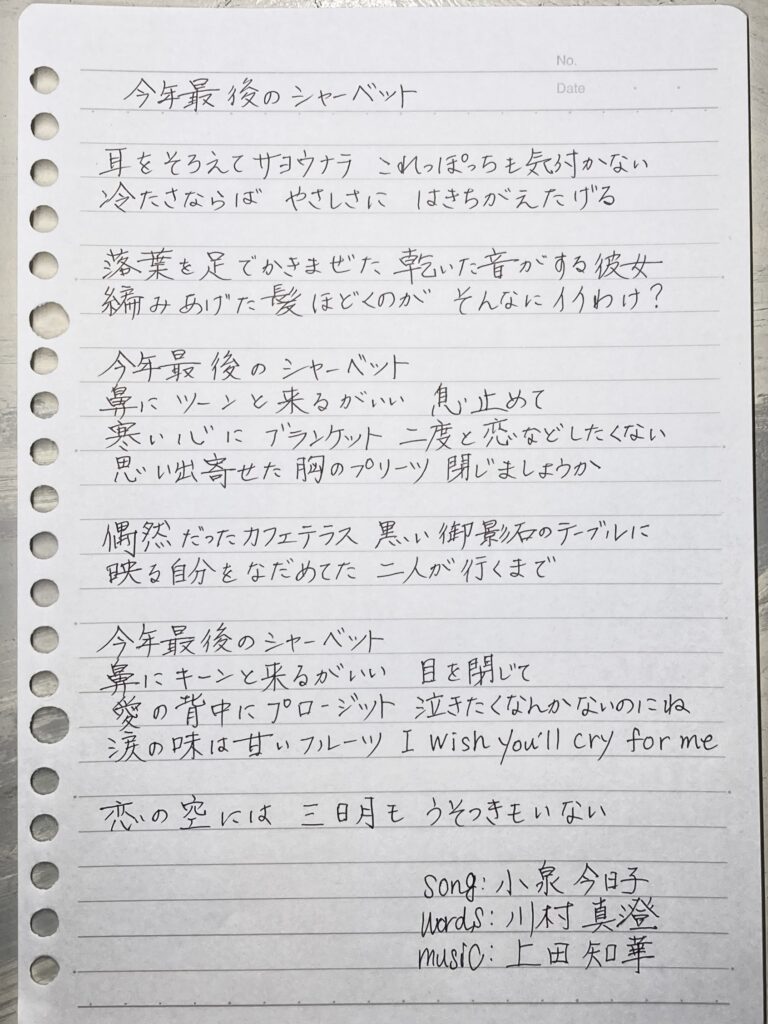 No.
Date
今年最後のシャーベット
耳をそろえてサヨウナラ これっぽっちも気付かない
冷たさならば やさしさに はきちがえたげる
落葉を足でかきまぜた 乾いた音がする彼女
編みあげた髪ほどくのが そんなにイイわけ?
今年最後のシャーベット
鼻にツーンと来るがいい 息止めて
寒い心に ブランケット 二度と恋などしたくない
思い出寄せた胸のプリーツ 閉じましょうか
偶然だったカフェテラス 黒い御影石のテーブルに
映る自分をなだめてた 二人が行くまで
今年最後のシャーベット
鼻にキーンと来るがいい 目を閉じて
愛の背中にプロージット 泣きたくなんかないのにね
涙の味は甘いフルーツ I wish you'll cry for me
恋の空には 三日月も うそつきもいない
song: 小泉今日子
words: 川村真澄
music: 上田知華